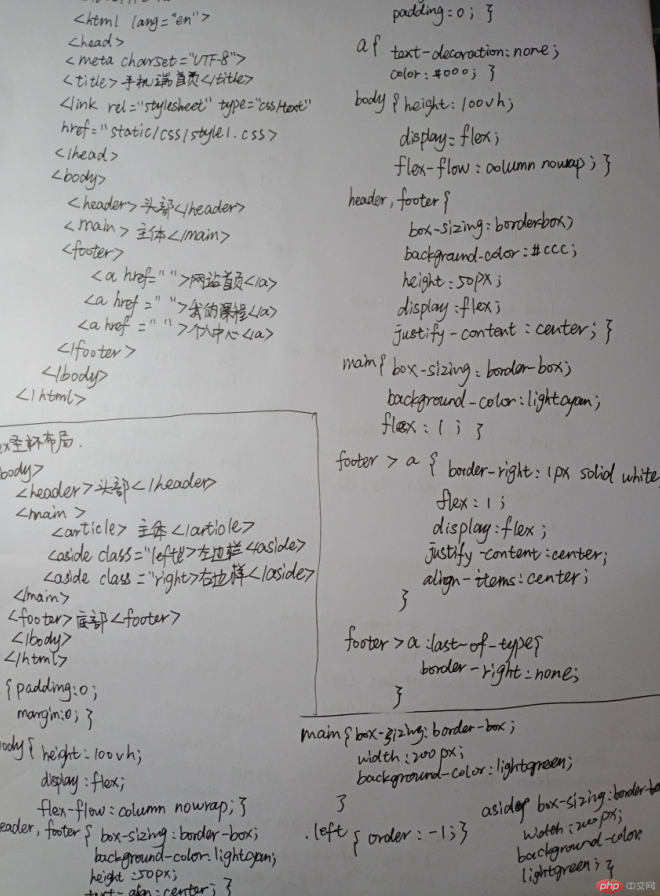 <html lang="en">
<head>
<meta charset="UTF-8">
<title>手机端首页</title>
<link rel="stylesheet" type="css/text"
href="static/css/style1.css>
</head>
<body>
<header>头部</header>
<main>主体</main>
<footer>
<a href=" ">网站首页</a>
<a href=" ">我的课程</a>
<a href=" ">个人中心</a>
</footer>
</body>
</html>
padding:0; }
a{ text-decoration:none;
color:#000; }
body{height:100vh;
display=flex;
flex-flow:column nowrap; }
header,footer{
box-sizing:borderbox;
background-color:#ccc;
height:50px;
display:flex;
justify-content:center; }
main{ box-sizing:border-box;
background-color:lightcyan;
flex:1; }
footer > a { border-right:1px solid white
flex:1;
display:flex;
justify-content:center;
align-items:center;
}
footer > a:last-of-type{
border-right=none;
}
圣杯布局.
body>
<header>头部</header>
<main>
<article>主体</article>
<aside class="left">左边栏<aside>
<aside class="right>右边样</aside>
</main>
<footer>底部<footer>
</body>
</html>
{padding:0;
margin:0; }
body{ height:100vh;
display:flex;
flex-flow:column nowrap; }
eader, footer{ box-sizing:border-box;
background-color:lightcyan;
height:50px;
text-align:center; }
main{box-sizing:border-box;
width:200px;
background-color:lightgreen;
}
.left{ order:-1; }
aside{ box-sizing:border-bo
width:200px;
background-color:
lightgreen; }
php 中文网